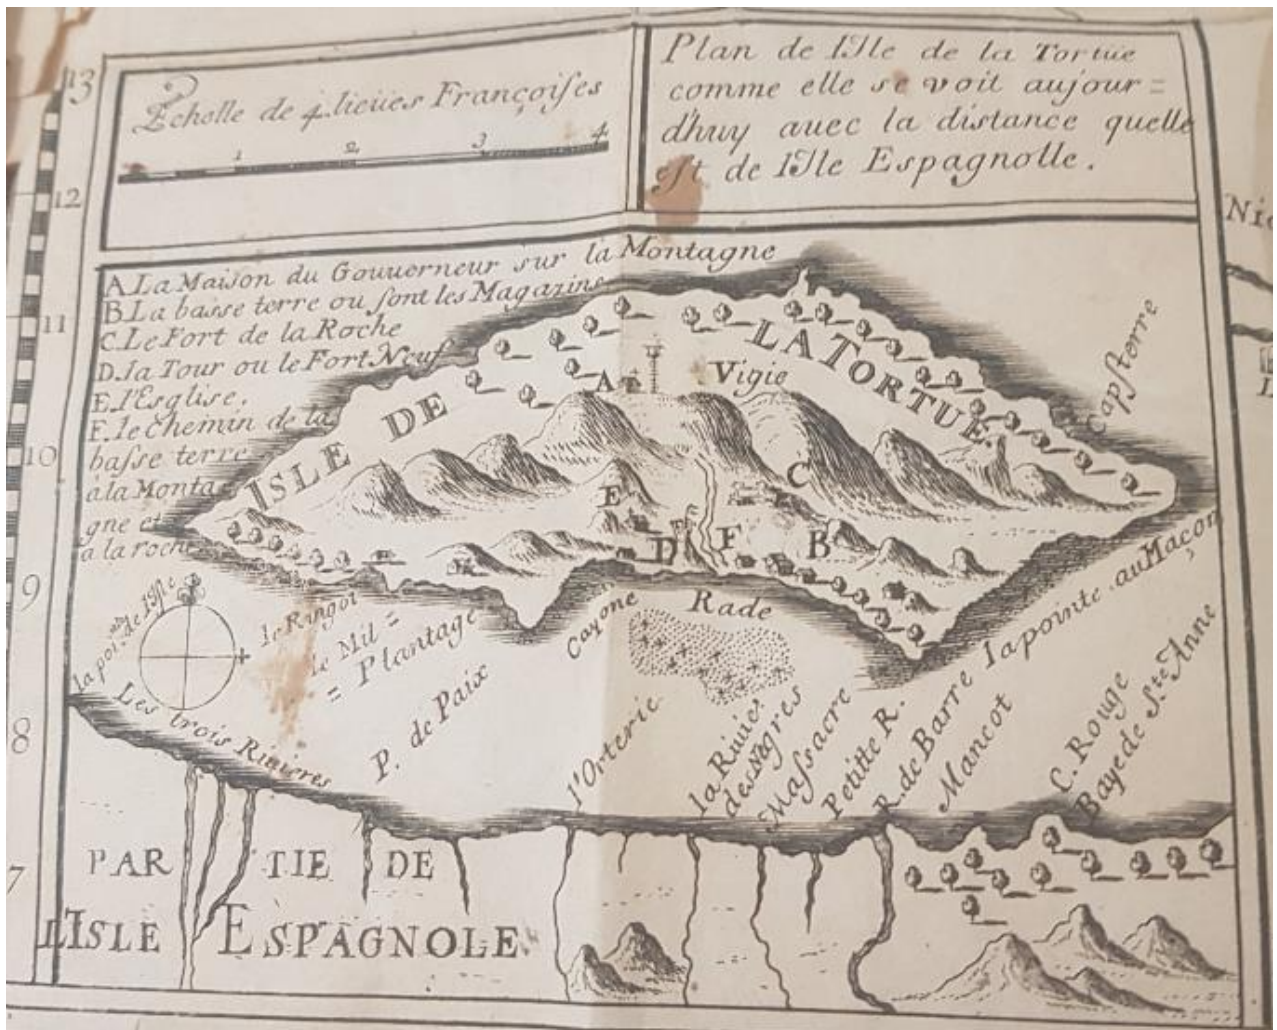 13
12
11
10
9
8
7
Echelle de 4 lieües Françoises
1 2 3 4
Plan de l'Isle de la Tortue
comme elle se voit aujour=
d'huy auec la distance quelle
est de l'Isle Espagnolle.
A La Maison du Gouuerneur sur la Montagne
B. La basse terre ou sont les Magazins
C. Le Fort de la Roche
D. la Tour ou le Fort Neuf
E. l'Esglise,
F. le Chemin de la
basse terre
a la Monta
gne et
a la roche
ISLE DE LA TORTUE.
A
Vigie
C
E
D
F
B
Capsterre
la pointe au Maçon
la poi de l'Isle
le Ringot
le Mil=
=Plantage
Cayone
Rade
Les trois Rivieres
P. de Paix
l'Orterie
la Riuie.
des Negres
Massacre
Petitte R.
R. de Barre
Mancot
C. Rouge
Baye de Ste. Anne
PARTIE DE
L'ISLE ESPAGNOLE